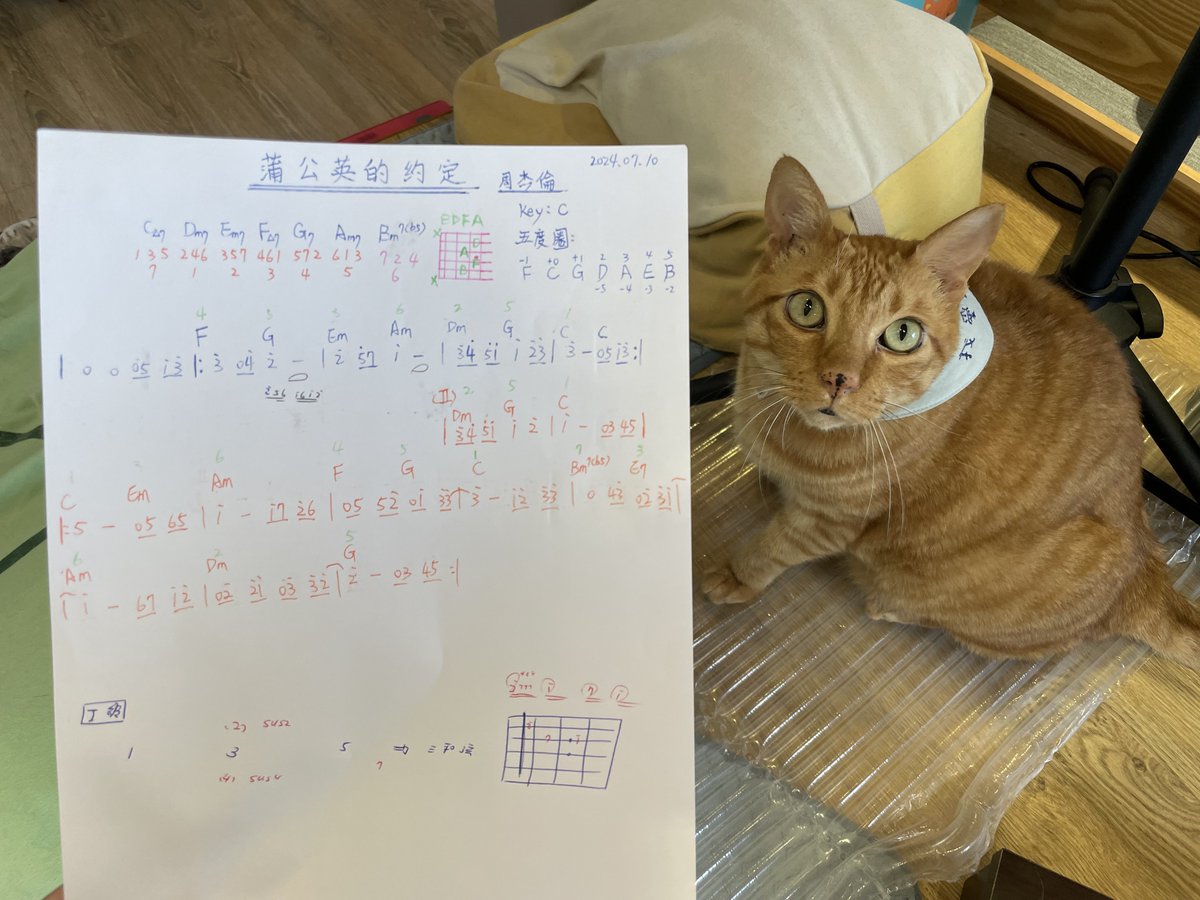 蒲公英的约定 2024.07.10
周杰倫
Key: C
五度圈:
-1 +0 +1 2 3 4 5
F C G D A E B
-5 -4 -3 -2
C△7 Dm7 Em7 F△7 G7 Am7 Bm7(b5)
135 246 357 461 572 613 724
7 1 2 3 4 5 6
EDFA
4 5 3 6 2 5 1
F G Em Am Dm G C C
| 0 0 05 i3 |: 3 04 2 - | 2 57 i - | 34 51 i 23 | 3 - 05 i3 :|
(II) 2 5 1
Dm G C
| 34 51 i 2 | i - 03 45 |
1 3 6 4 5 1 7 3
C Em Am F G C Bm7(b5) E7
|: 5 - 05 65 | i - i7 26 | 05 52 01 33 | 3 - i2 33 | 0 43 02 31 |
6 2 5
Am Dm G
| i - 67 i2 | 02 21 03 32 | 2 - 03 45 :|
J 級
5452
1 3 5 ⇒ 三和弦
5434